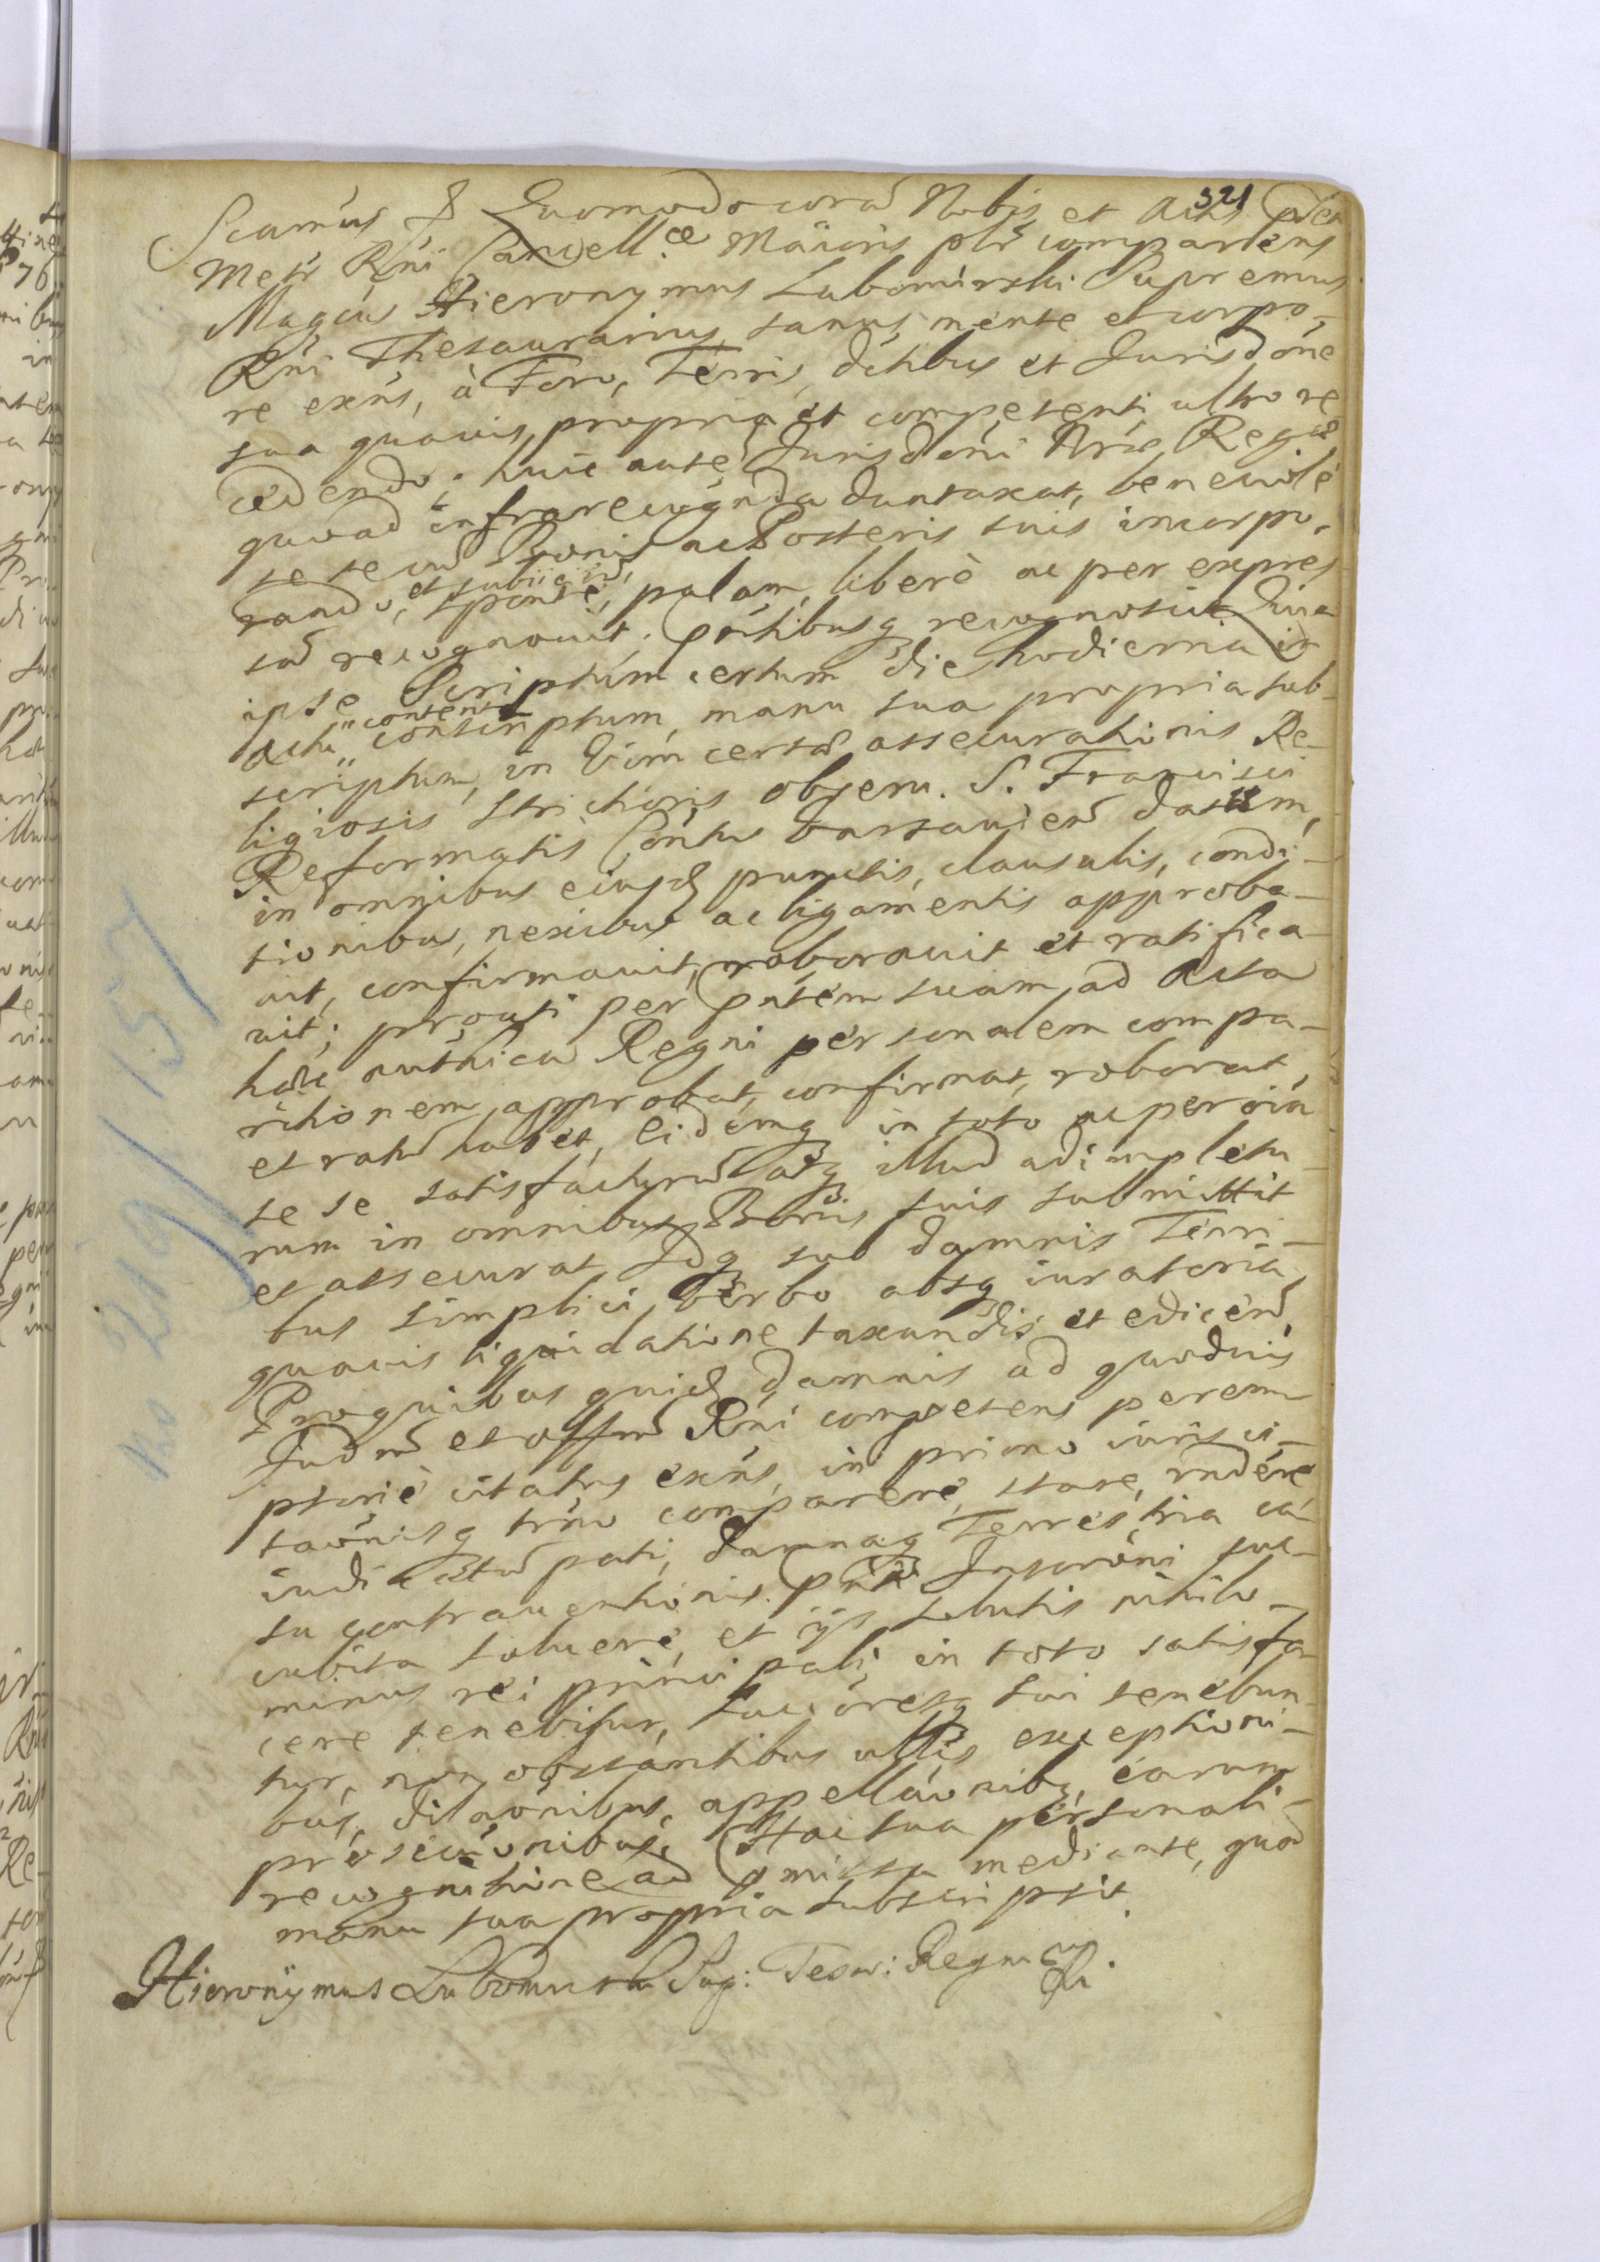 321
Scamus & Quomodo coră Nobis et Actis pñtibus
Metr Rñi Cancell.æ Maioris plr compariens
Magcus Hieronymus Lubomirski Supremus
Rñi Thesaurarius, sanus mente et corpo-
re exñs, à Foro, Terris, dctibus et Jurisdõne
sua quavis, propria et competenti ultro re
cedendo; huic autẽ Jurisdõni Nrae Regiæ
quoad infrarecognda duntaxat, beneuole
se se cũ Bonis ac Posteris suis incorpo-
rando, et subiiciẽd, sponte, palam, liberè ac per expres
sũ recognouit. pñtibusq recognoscit Quia
ipse Scriptum certum die hodierna in
Actu contento conscriptum, manu sua propria sub-
scriptum, in Vim certæ assecurationis Re-
ligiosis Strictioris observ. S. Francisci
Reformatis Contus Varsauien datum,
in omnibus eiusd punctis, clausulis, condi-
tionibus, nexibus ac ligamentis approba-
uit, confirmauit, roborauit et ratifica-
uit; prouti per pntem suam ad Acta
hæc authica Regni personalem compa-
ritionem, approbat, confirmat, roborat,
et ratũ habet, eidemq in toto ac per oia
se se satisfacturũ atq illud adimpletu-
rum in omnibus Bonis suis submittit
et assecurat. Idq sub damnis Terri-
bus simplici verbo absq iuratoria
quavis liquidatione taxandis et ediceñd,
Proquibus quid damnis ad quoduis
Judm et offm Rñi competens perem
ptoriè citatus exñs, in primo iuris ci-
taõnisq trno comparere, stare, rndere
iudicatũ pati, damnaq Terrestria ca-
su contrauentionis pntis Inscrõni suc-
cubita soluere, et iis solutis nihilo-
minus rei principali in toto satisfa
cere tenebitur, Succoresq sui tenebun
tur, non obstantibus ullis exceptioni-
bus, dilaõnibus, appellaõnibq, earum
prosecuõnibus, Hac sua personali
recognitione ad pmissa mediante, quod
manu sua propria subscripsit.
Hieronymus Lubomirski Sup: Tesor: Regni mp
No 219/157